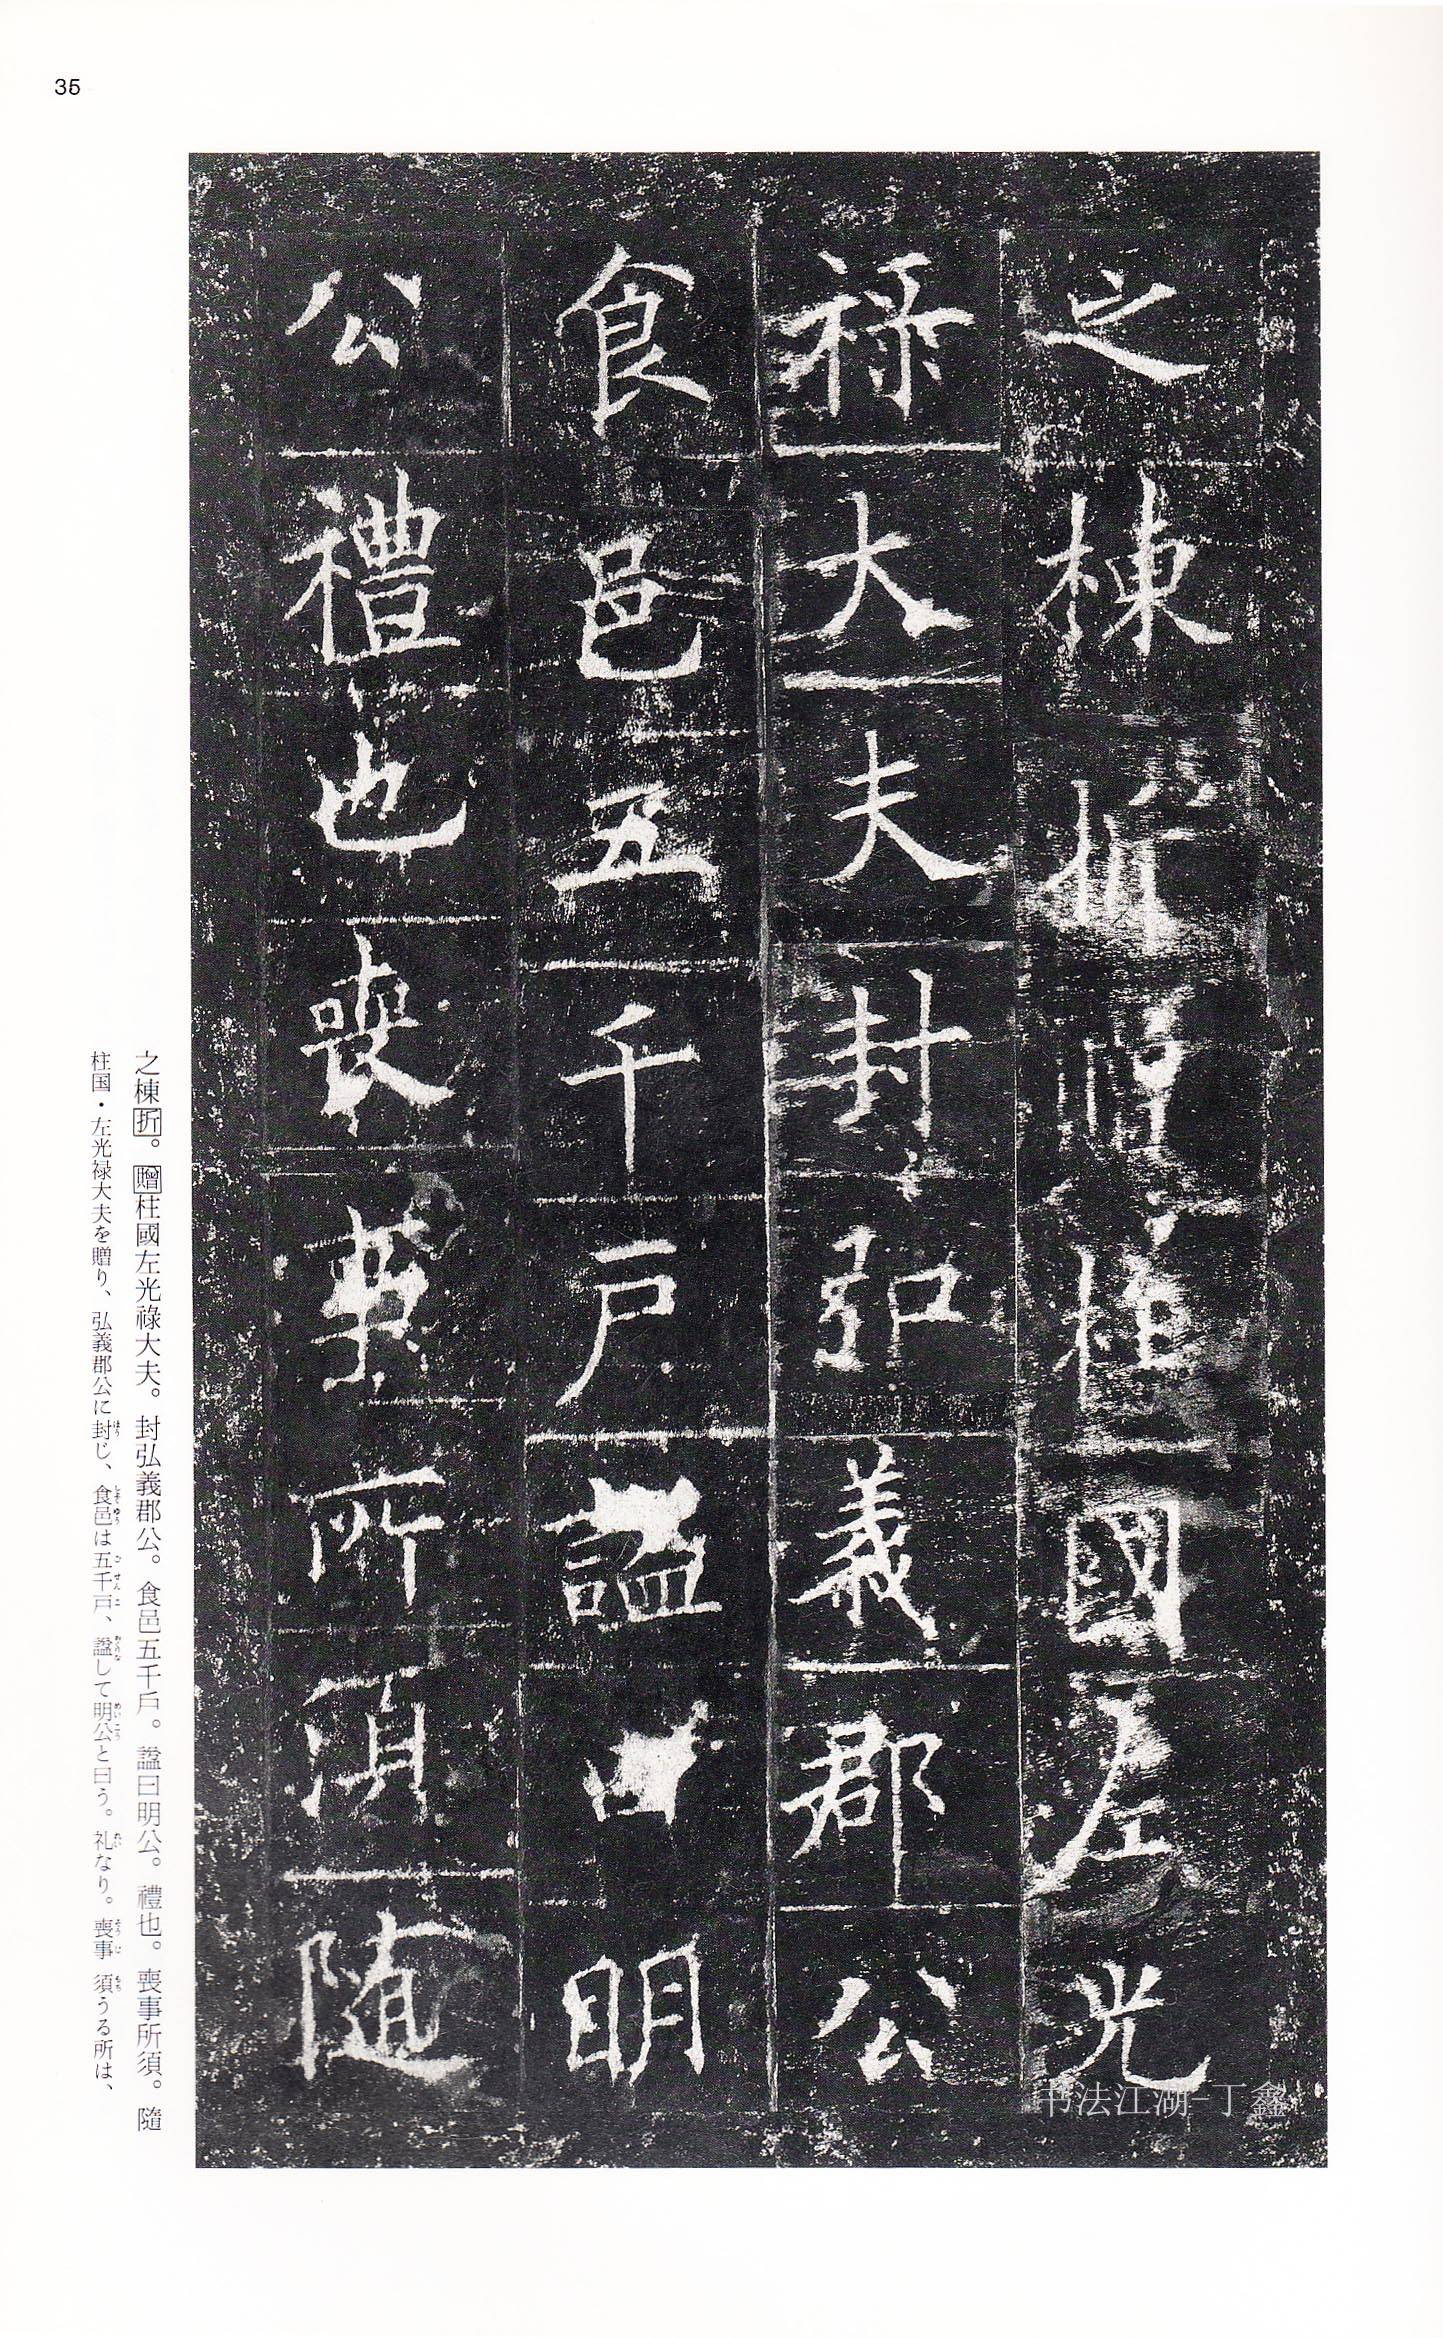 35
之棟折贈柱國左光
祿大夫封弘義郡公
食邑五千戶謚曰明
公禮也喪事所須随
之棟折。贈柱國左光祿大夫。封弘義郡公。食邑五千戶。諡曰明公。禮也。喪事所須。隨
柱国・左光禄大夫を贈り、弘義郡公に封じ、食邑は五千戸、諡して明公と曰う。礼なり。喪事須うる所は、
书法江湖-丁鑫